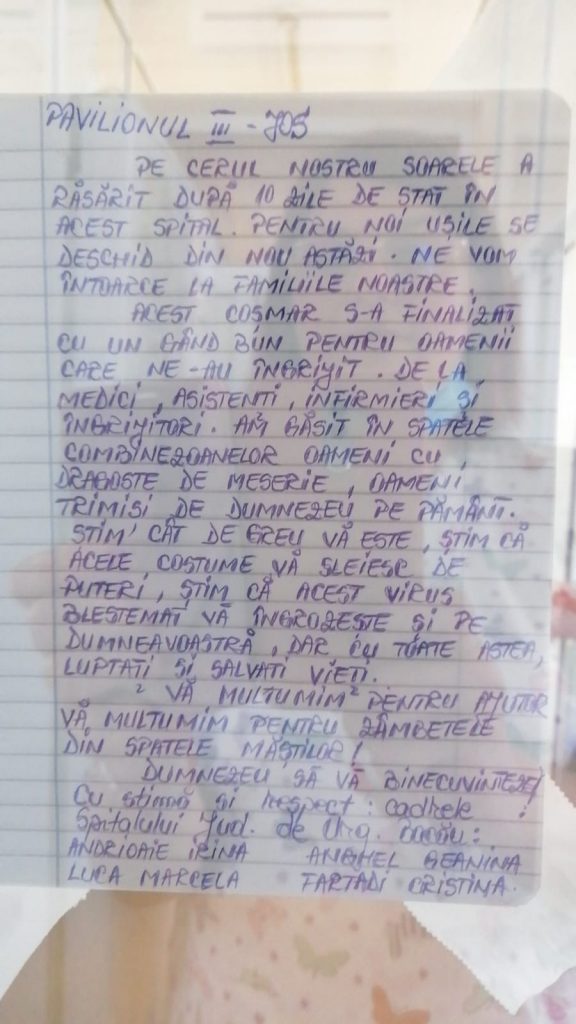 PAVILIONUL III - JOS
PE CERUL NOSTRU SOARELE A
RĂSĂRIT DUPĂ 10 ZILE DE STAT ÎN
ACEST SPITAL. PENTRU NOI UȘILE SE
DESCHID DIN NOU ASTĂZI. NE VOM
ÎNTOARCE LA FAMILIILE NOASTRE.
ACEST COȘMAR S-A FINALIZAT
CU UN GÂND BUN PENTRU OAMENII
CARE NE-AU ÎNGRIJIT. DE LA
MEDICI, ASISTENTI, INFIRMIERI ȘI
ÎNGRIJITORI. AM GĂSIT ÎN SPATELE
COMBINEZOANELOR OAMENI CU
DRAGOSTE DE MESERIE, OAMENI
TRIMIȘI DE DUMNEZEU PE PĂMÂNT.
ȘTIM CÂT DE GREU VĂ ESTE, ȘTIM CĂ
ACELE COSTUME VĂ SLEIESC DE
PUTERI, ȘTIM CĂ ACEST VIRUS
BLESTEMAT VĂ ÎNGROZEȘTE ȘI PE
DUMNEAVOASTRĂ, DAR CU TOATE ASTEA,
LUPTAȚI ȘI SALVAȚI VIEȚI.
VĂ MULȚUMIM PENTRU AJUTOR
VĂ MULȚUMIM PENTRU ZÂMBETELE
DIN SPATELE MĂȘTILOR!
DUMNEZEU SĂ VĂ BINECUVINTEZE!
Cu stimă și respect: cadrele
Spitalului Jud. de Urg. Bacău:
ANDRIOAIE IRINA ANGHEL GEANINA
LUCA MARCELA TARTADI CRISTINA.